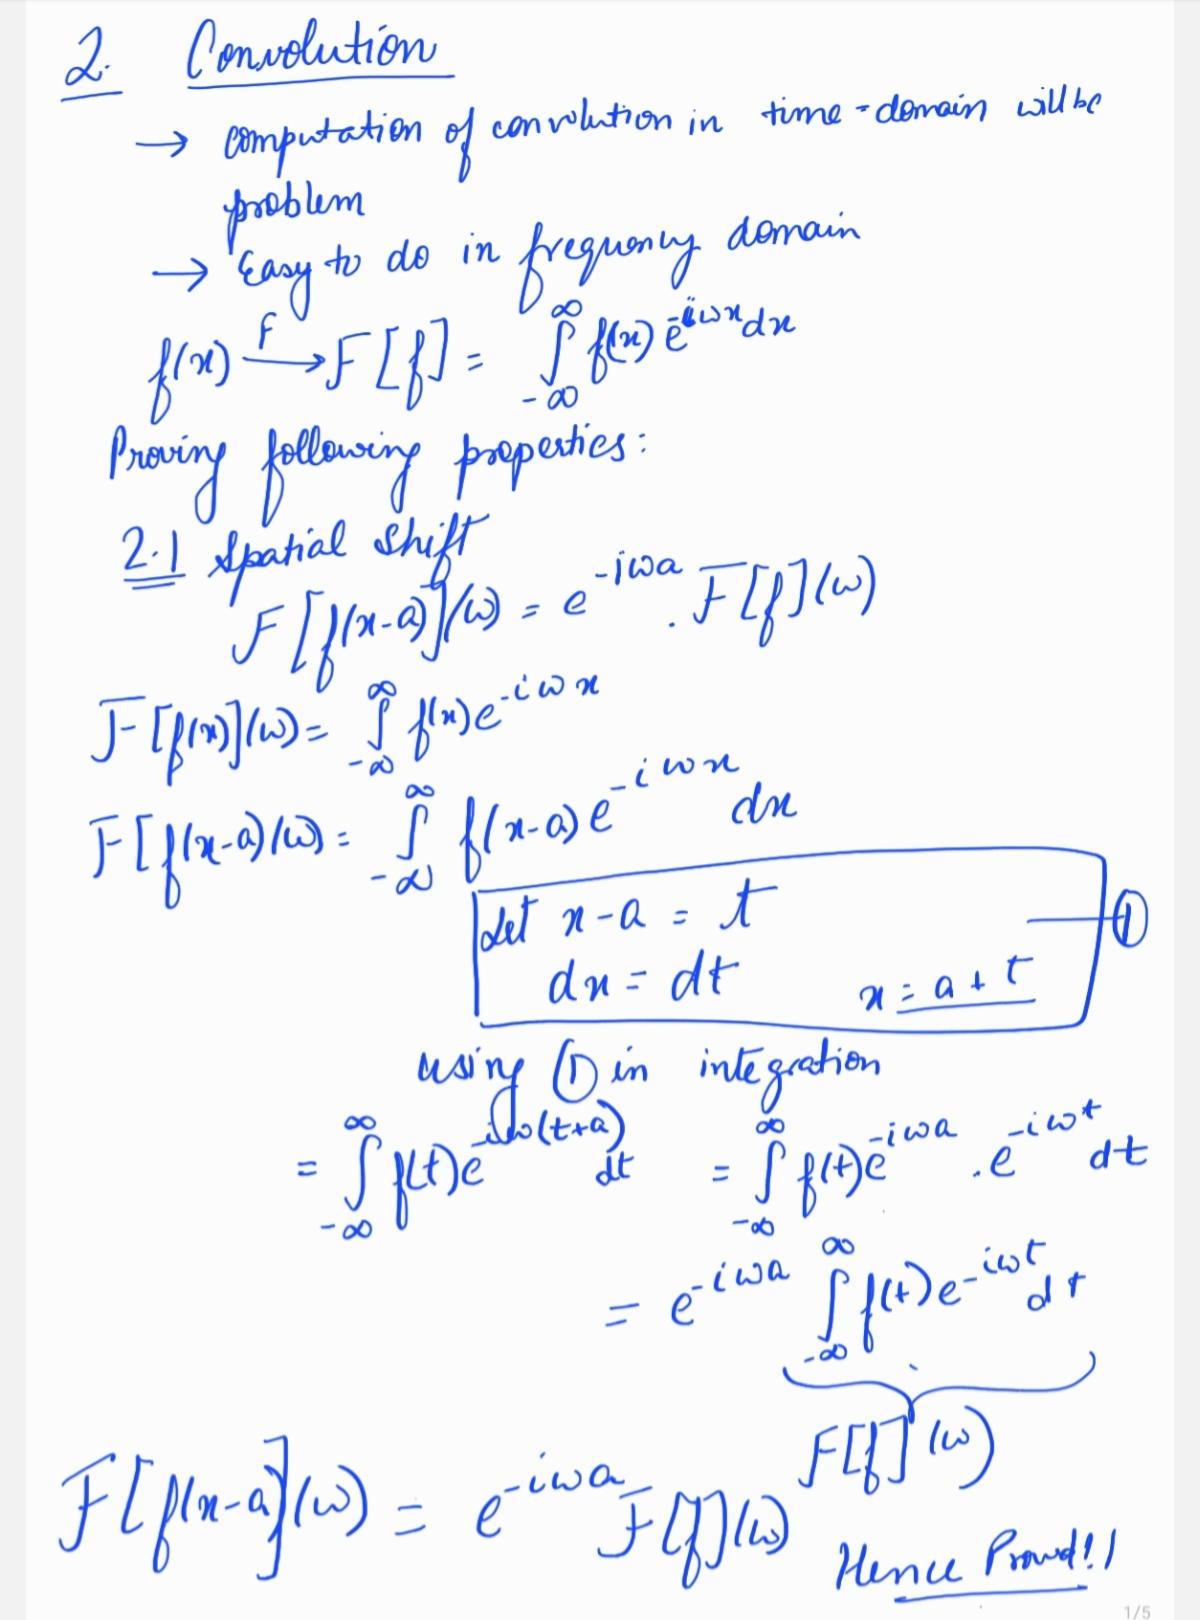 2. Convolution
→ computation of convolution in time-domain will be
problem
→ Easy to do in frequency domain
f(x) —F→ F[f] = ∫_{-∞}^{∞} f(x) e^{-iωx} dx
Proving following properties:
2.1 Spatial Shift
F[f(x-a)](ω) = e^{-iωa} . F[f](ω)
F[f(x)](ω) = ∫_{-∞}^{∞} f(x) e^{-iωx}
F[f(x-a)(ω) = ∫_{-∞}^{∞} f(x-a) e^{-iωx} dx
Let x-a = t — ①
dx = dt x = a + t
using ① in integration
= ∫_{-∞}^{∞} f(t) e^{-iω(t+a)} dt = ∫_{-∞}^{∞} f(t) e^{-iωa} . e^{-iωt} dt
= e^{-iωa} ∫_{-∞}^{∞} f(t) e^{-iωt} dt
F[f](ω)
F[f(x-a)](ω) = e^{-iωa} F[f](ω)
Hence Proved!!
1/5